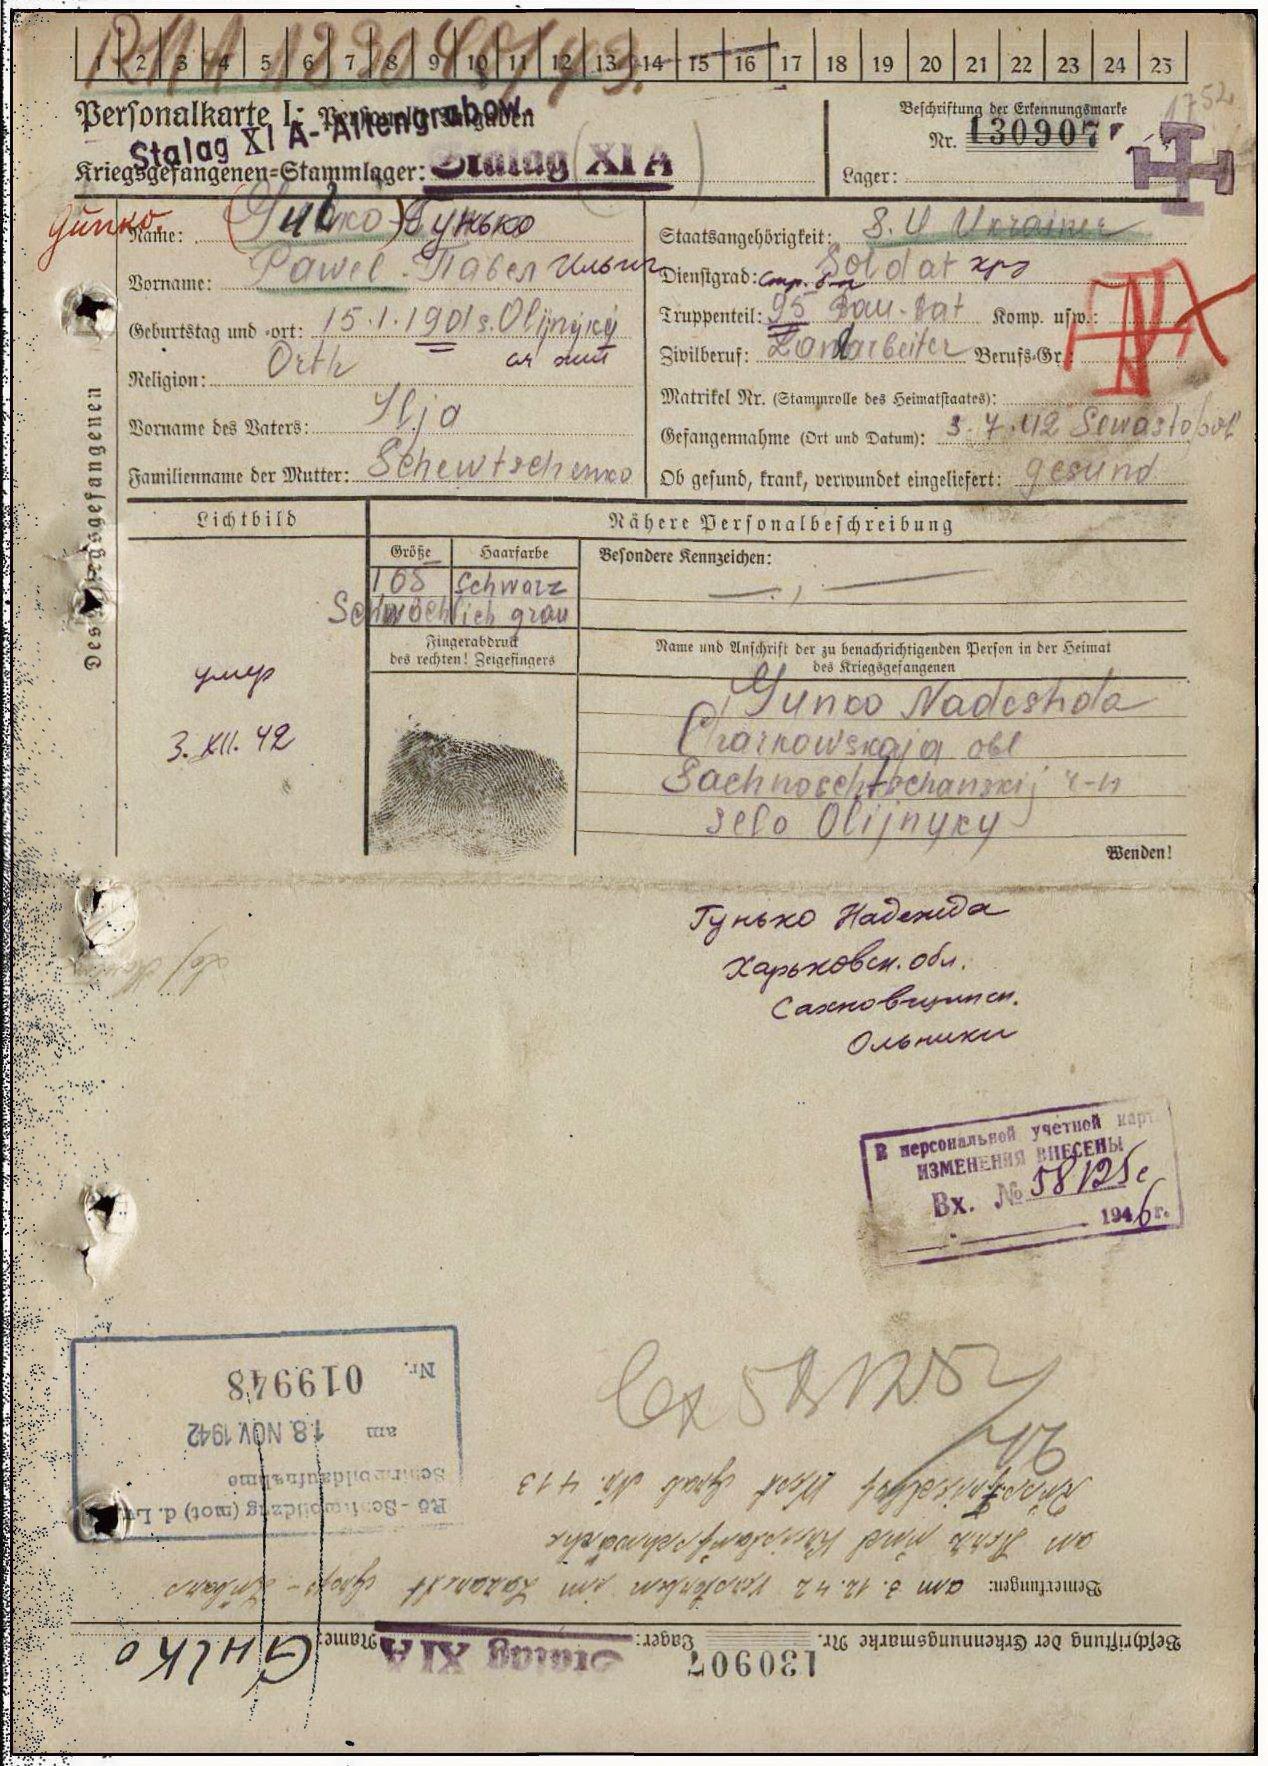 1 2 3 4 5 6 7 8 9 10 11 12 13 14 15 16 17 18 19 20 21 22 23 24 25
Personalkarte I: Personelle Angaben
Stalag XI A - Altengrabow.
Kriegsgefangenen-Stammlager: Stalag XI A
1752
Beschriftung der Erkennungsmarke
Nr. 130907
Lager:
Des Kriegsgefangenen
Gunko.
Name: Гунько
Vorname: Pawel - Павел Ильич
Geburtstag und -ort: 15.1.1901 s. Olijnyky
Religion: Orth
Vorname des Vaters: Ilja
Familienname der Mutter: Schewtschenko
Staatsangehörigkeit: S.U Ukrainer
Dienstgrad: Soldat кр
Truppenteil: 95 Bau-Bat Komp. usw.:
Zivilberuf: Landarbeiter Berufs-Gr.:
Matrikel Nr. (Stammrolle des Heimatstaates):
Gefangennahme (Ort und Datum): 3.7.42 Sewastopol
Ob gesund, krank, verwundet eingeliefert: gesund
Lichtbild
Nähere Personalbeschreibung
Größe Haarfarbe
165 schwarz
Schwächlich grau
Besondere Kennzeichen:
Fingerabdruck
des rechten! Zeigefingers
Name und Anschrift der zu benachrichtigenden Person in der Heimat
des Kriegsgefangenen
Gunko Nadeshda
Charkowskaja obl
Sachnoschtschanskij r-n
selo Olijnyky
Wenden!
умер
3. XII. 42
Гунько Надежда
Харьковск. обл.
Сахновщинск.
Ольники
В персональной учетной карт
ИЗМЕНЕНИЯ ВНЕСЕНЫ
Вх. № 58125с
1946 г.
Вх 58125
Beschriftung der Erkennungsmarke Nr. 130907 Lager: Stalag XI A Name: Gunko
Bemerkungen: am 3.12.42 verstorben im Lazarett Groß-Lübars
an Herz und Kreislaufschwäche
West Grab Nr. 413
Rö-Schirmbildzug (mot) d. Lw
Schirmbildaufnahme
am 18. NOV. 1942
Nr. 019948